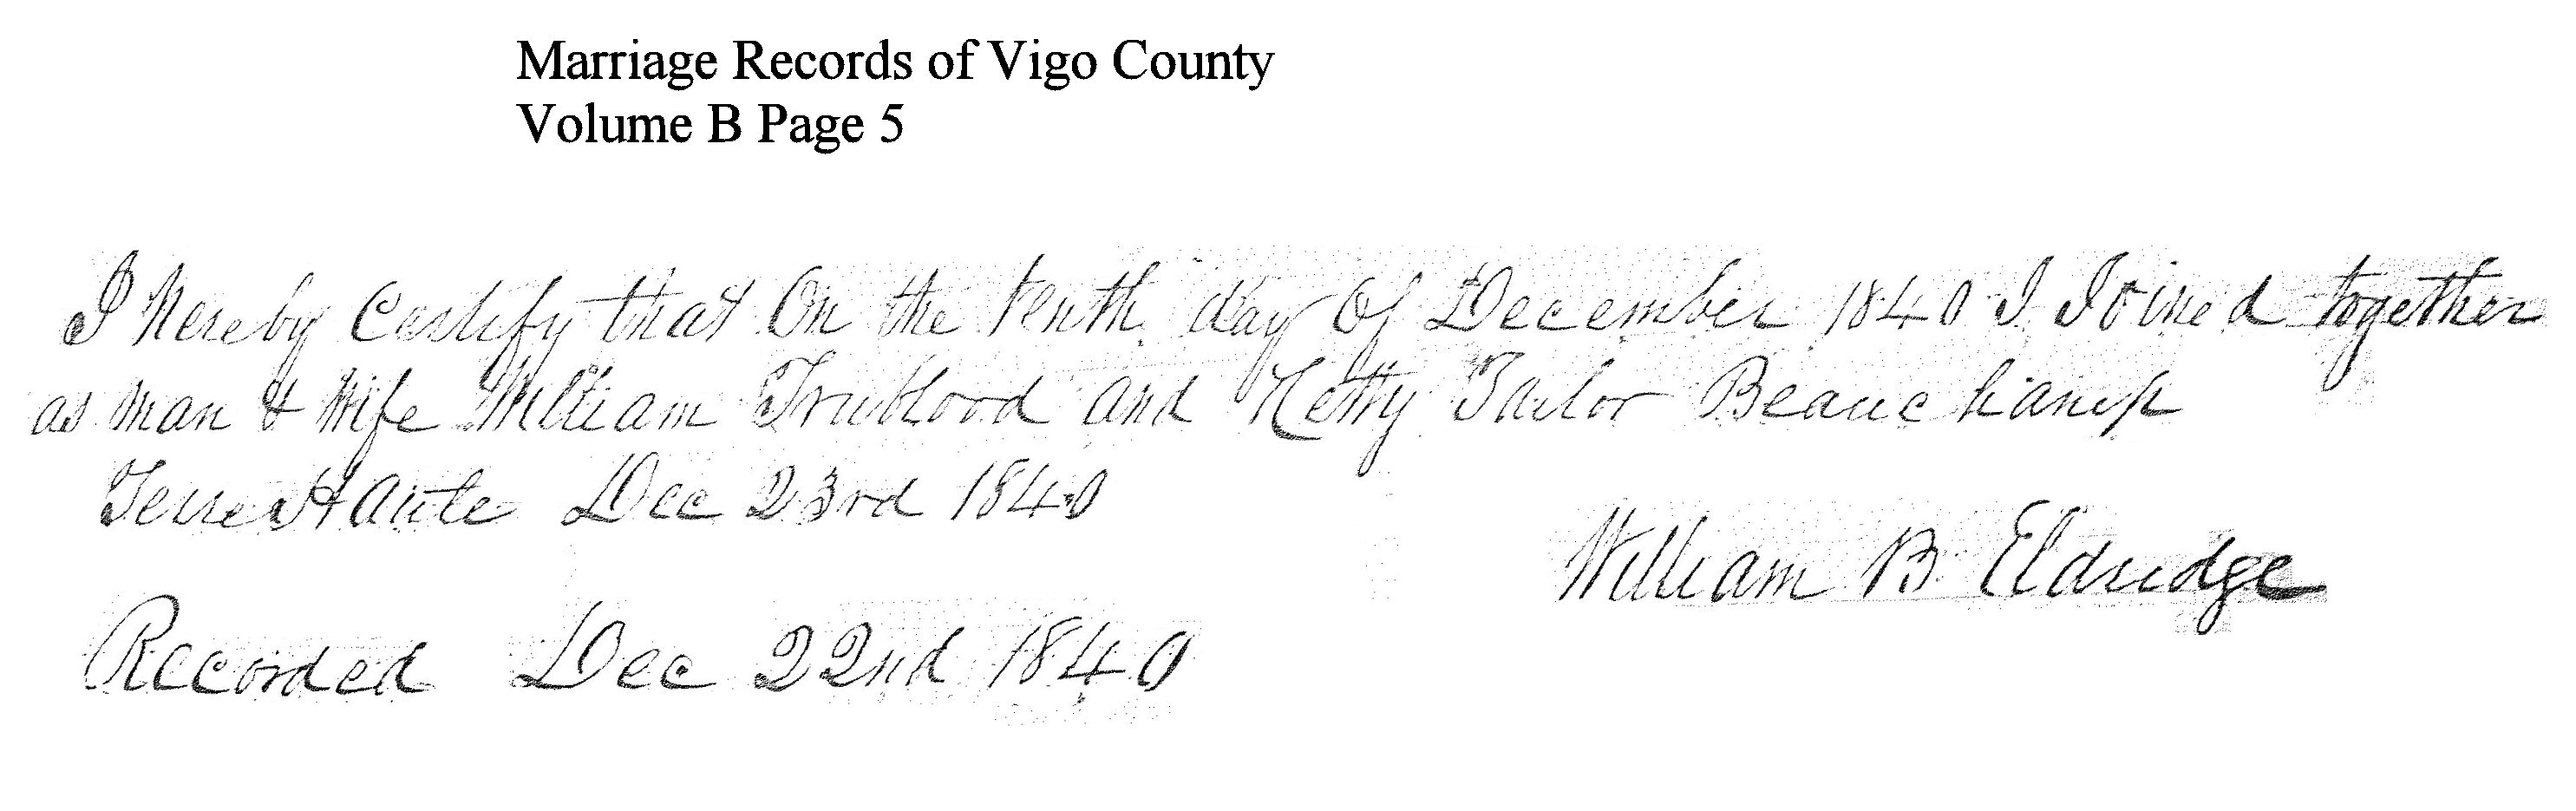 Marriage Records of Vigo County
Volume B Page 5
I hereby Certify that On the tenth day Of December 1840 I Joined together
as man & Wife William Trublood and Hetty Tailor Beauchamp
Terre Haute Dec 23rd 1840
William B Eldridge
Recorded Dec 22nd 1840